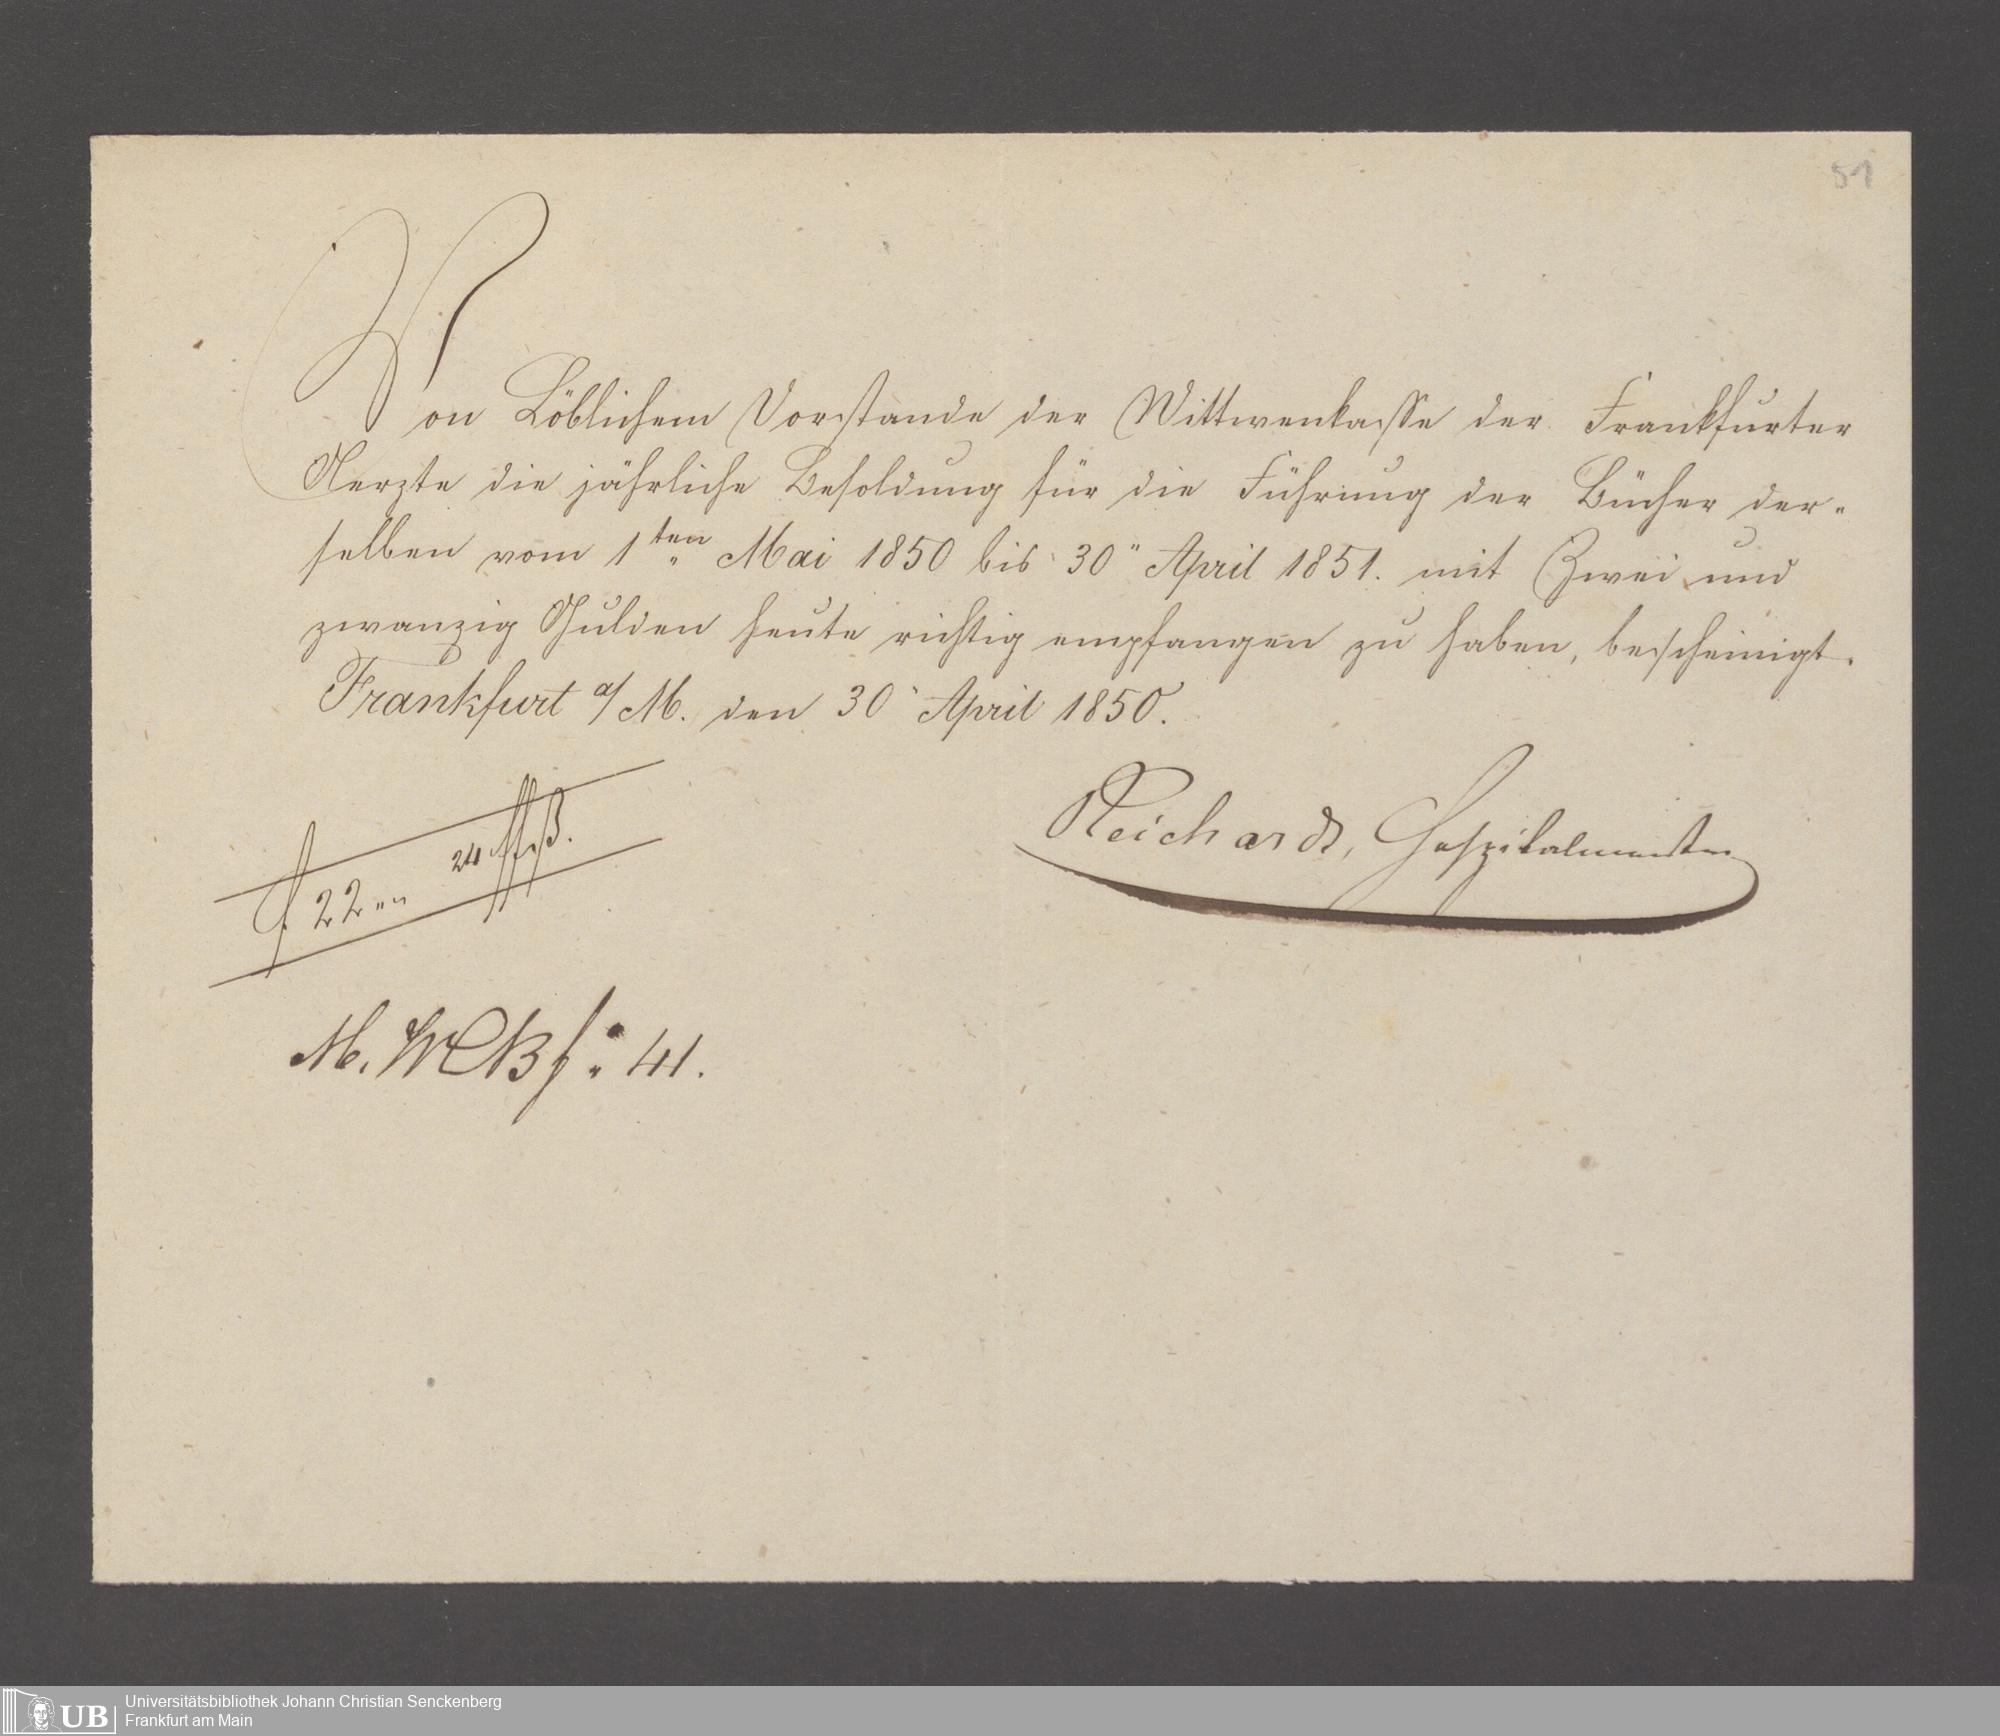 51
Von Löblichem Vorstande der Wittwenkasse der Frankfurter
Aerzte die jährliche Besoldung für die Führung der Bücher der-
selben vom 1ten Mai 1850 bis 30" April 1851. mit Zwei und
zwanzig Gulden heute richtig empfangen zu haben, bescheinigt.
Frankfurt a/M. den 30 April 1850.
Reichard, Hospitalmeister
f. 22 24
41.
UB
Universitätsbibliothek Johann Christian Senckenberg
Frankfurt am Main